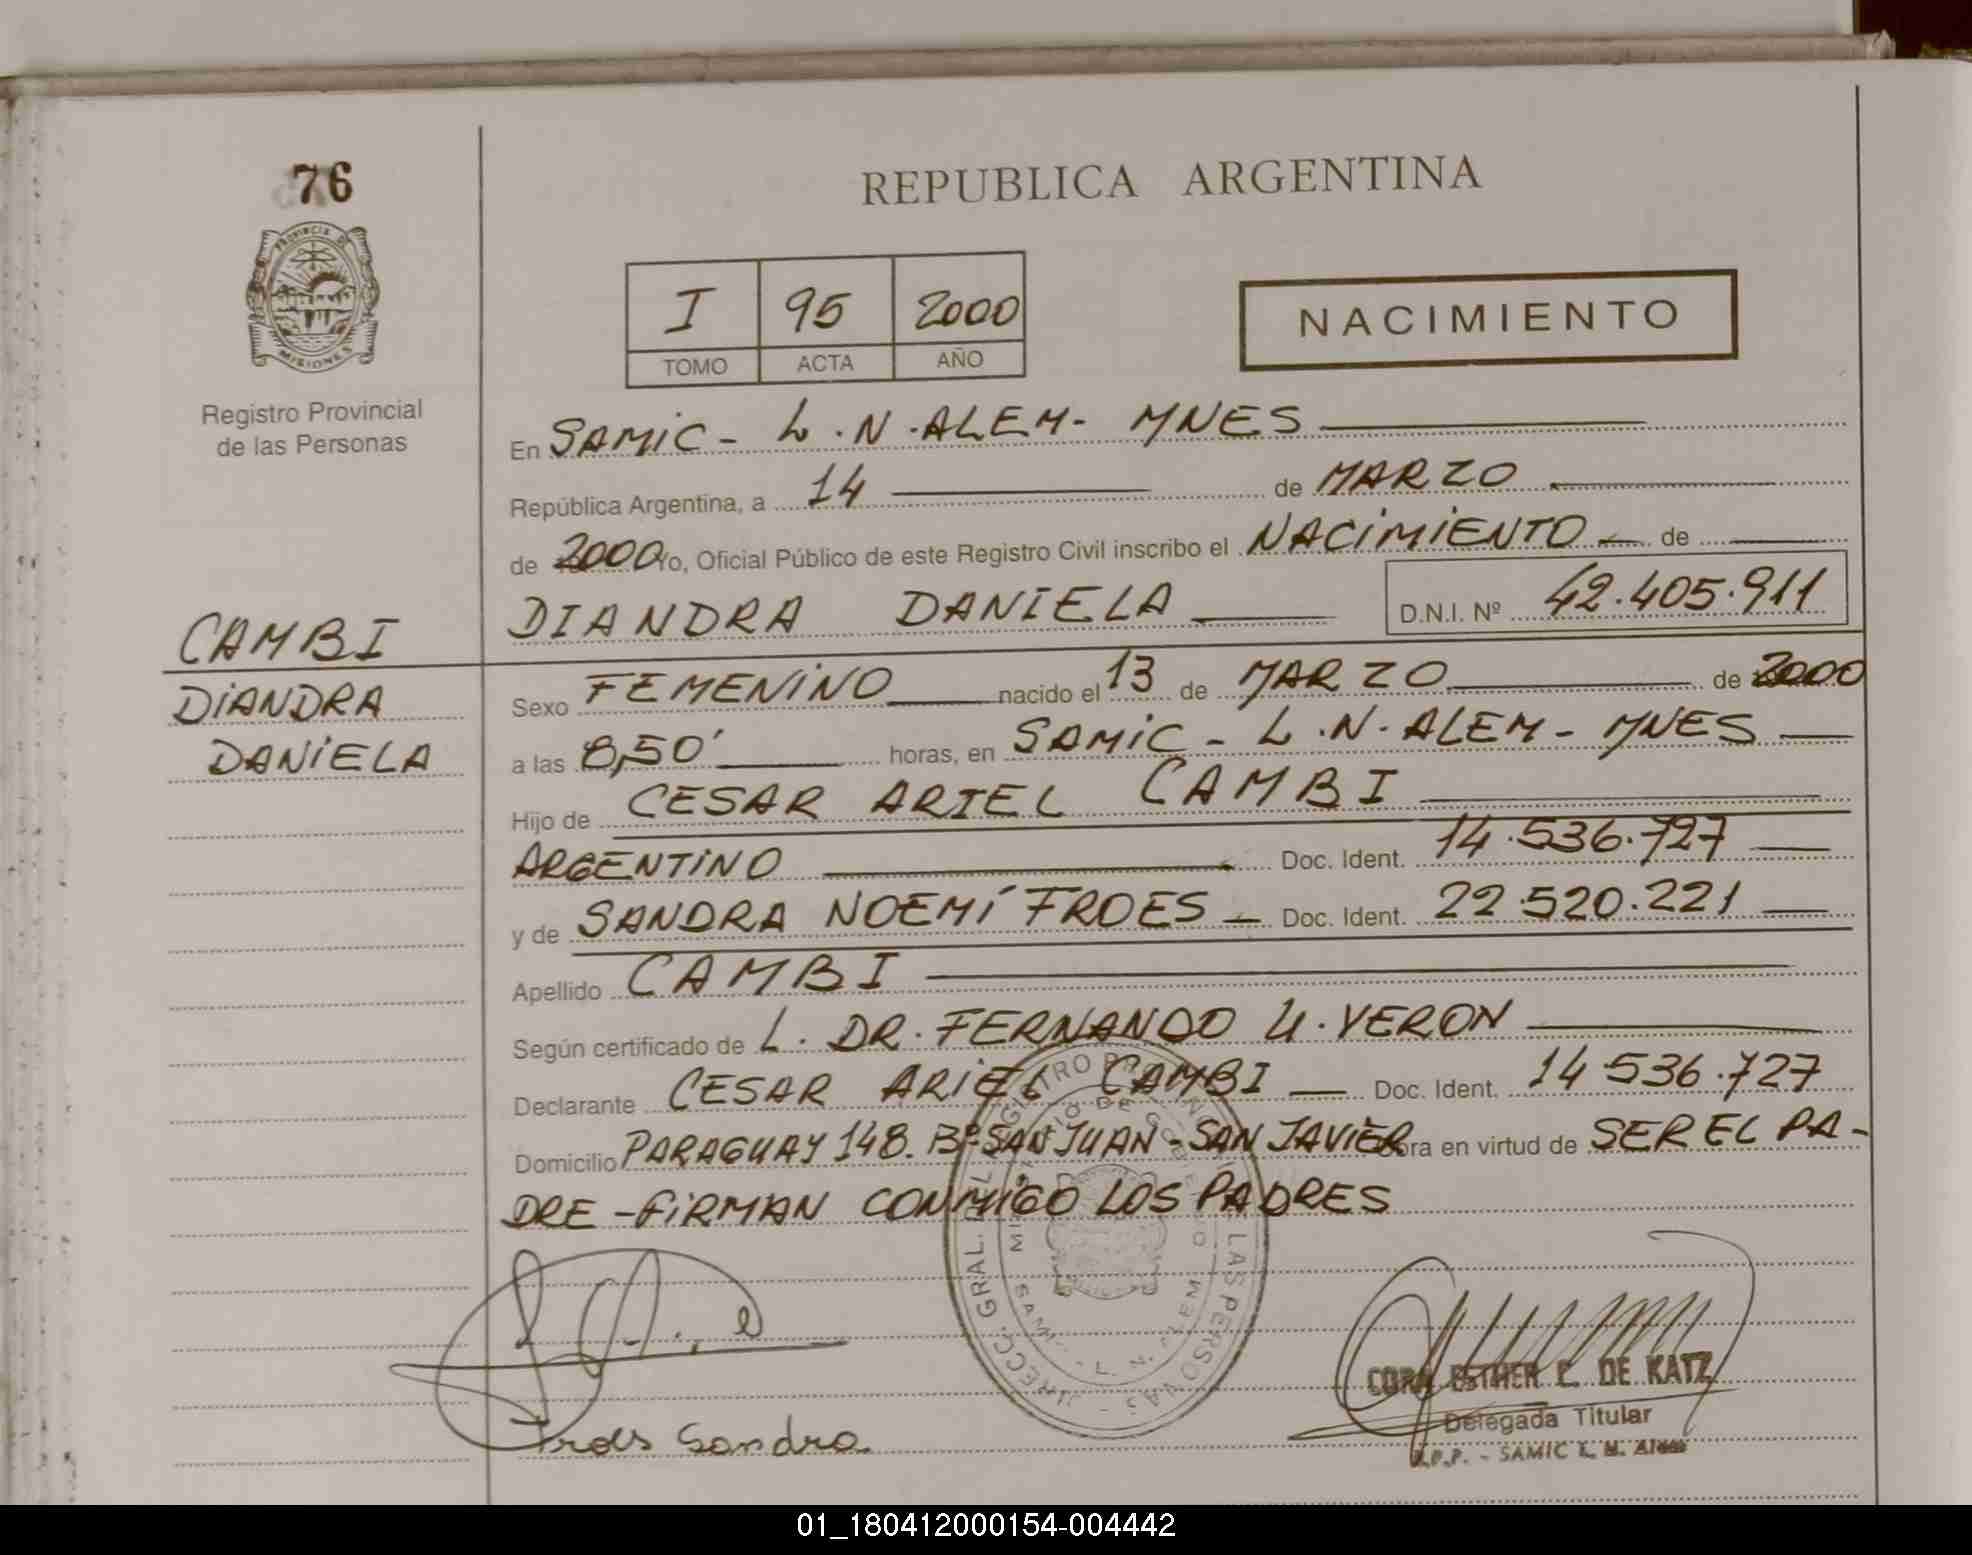 76
PROVINCIA DE
MISIONES
Registro Provincial
de las Personas
CAMBI
DIANDRA
DANIELA
REPUBLICA ARGENTINA
I 95 2000
TOMO ACTA AÑO
NACIMIENTO
En SAMIC - L.N. ALEM - MNES
República Argentina, a 14 de MARZO
de 2000 Yo, Oficial Público de este Registro Civil inscribo el NACIMIENTO de
DIANDRA DANIELA D.N.I. Nº 42.405.911
Sexo FEMENINO nacido el 13 de MARZO de 2000
a las 8,50' horas, en SAMIC - L.N. ALEM - MNES
Hijo de CESAR ARIEL CAMBI
ARGENTINO Doc. Ident. 14.536.727
y de SANDRA NOEMÍ FROES - Doc. Ident. 22.520.221
Apellido CAMBI
Según certificado de L. DR. FERNANDO U. VERON
Declarante CESAR ARIEL CAMBI Doc. Ident. 14.536.727
Domicilio PARAGUAY 148. Bº SAN JUAN - SAN JAVIER obra en virtud de SER EL PA-
DRE - FIRMAN CONMIGO LOS PADRES
Sandra
CORA ESTHER C. DE KATZ
Delegada Titular
R.P.P. - SAMIC L. N. Alem
01_180412000154-004442